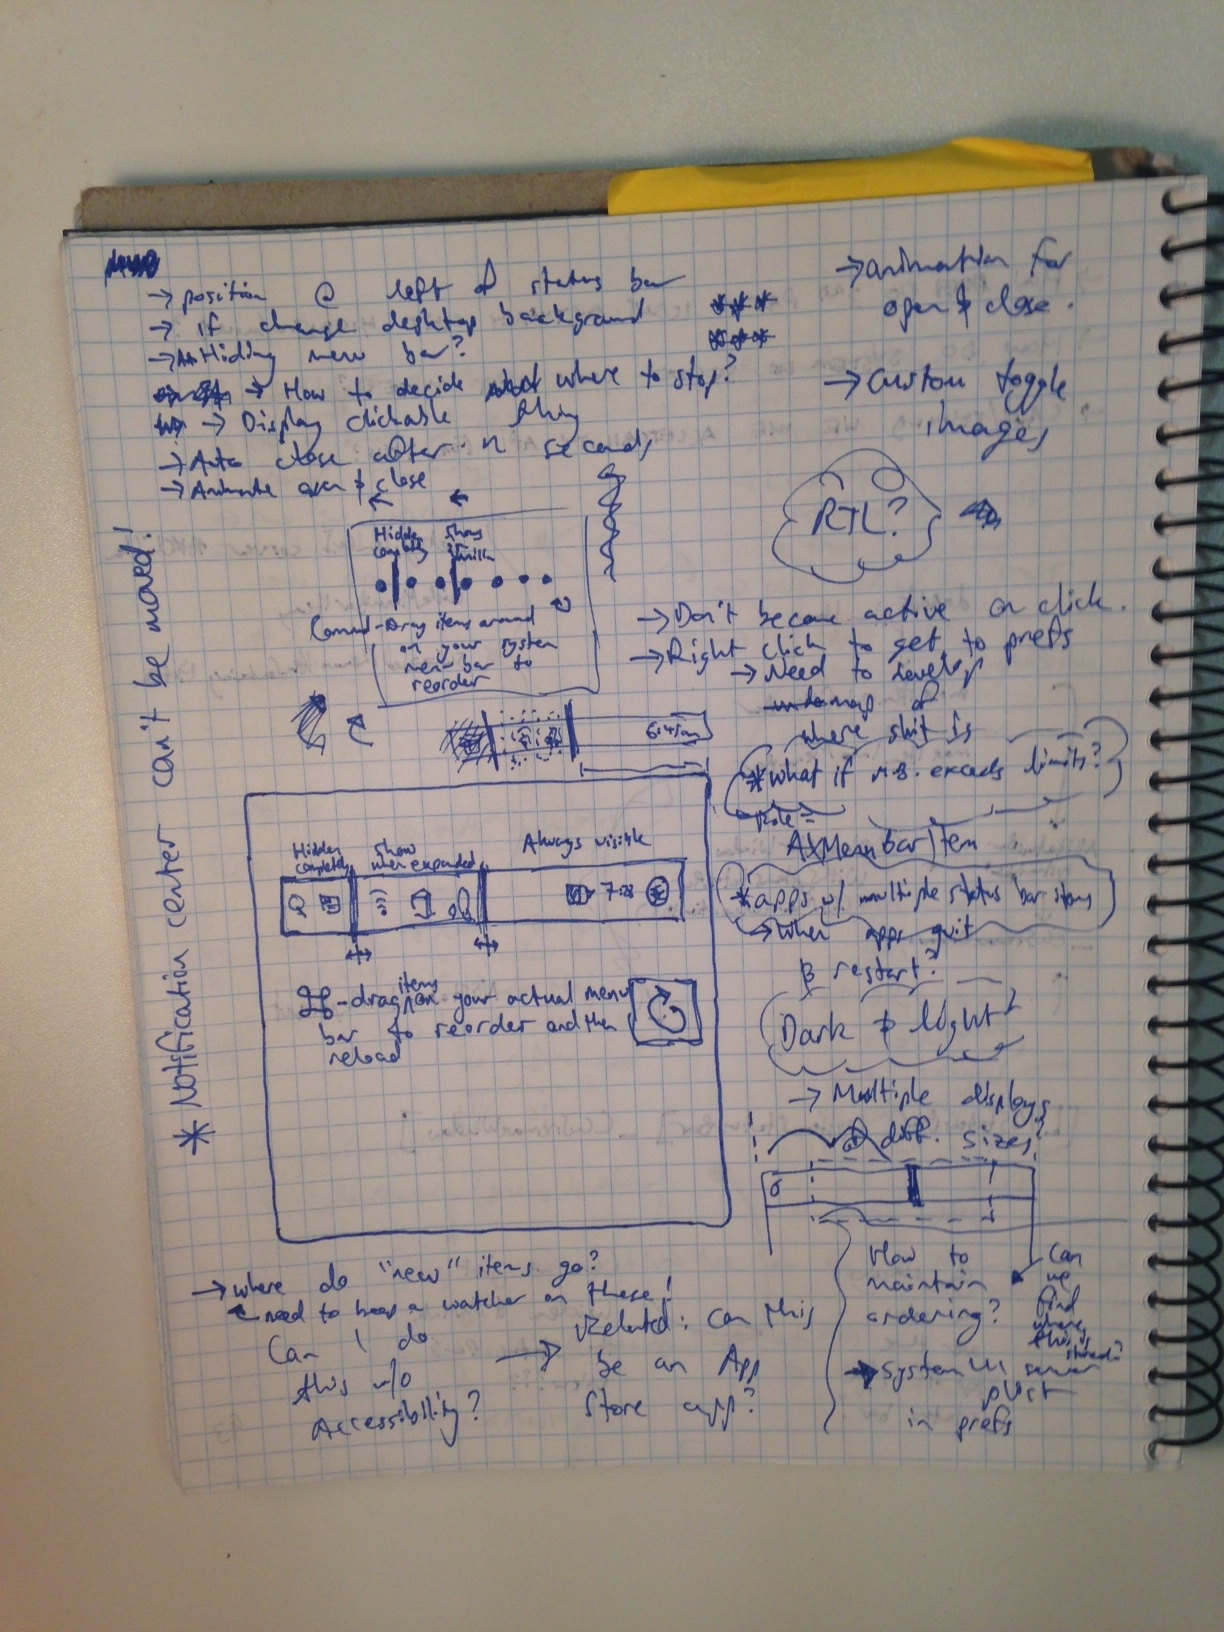 → position @ left of status bar
→ if change desktop background
→ Hiding menu bar?
→ How to decide where to stop?
→ Display clickable thing
→ Auto close after n seconds
→ Animate open & close
→ animation for
open & close.
→ Custom toggle
images
RTL?
* Notification center can't be moved!
Hidden completely
Shows
Command-Drag items around
on your system
menu bar to
reorder
→ Don't become active on click.
→ Right click to get to prefs
→ Need to develop
map of
where shit is
* What if m.b. exceeds limits?
Role =
AXMenuBarItem
* apps w/ multiple status bar items
→ When apps quit
& restart?
Dark & light
→ Multiple displays
@ diff. sizes?
6:41am
Hidden
completely
Show
when expanded
Always visible
7:28
⌘-drag items on your actual menu
bar to reorder and then
reload
→ where do "new" items go?
need to keep a watcher on these!
Can I do
this w/o
Accessibility?
→ Related: can this
be an App
Store app?
How to
maintain
ordering?
→ System UI server
plist
in prefs
Can
we
find
where
this is
stored?